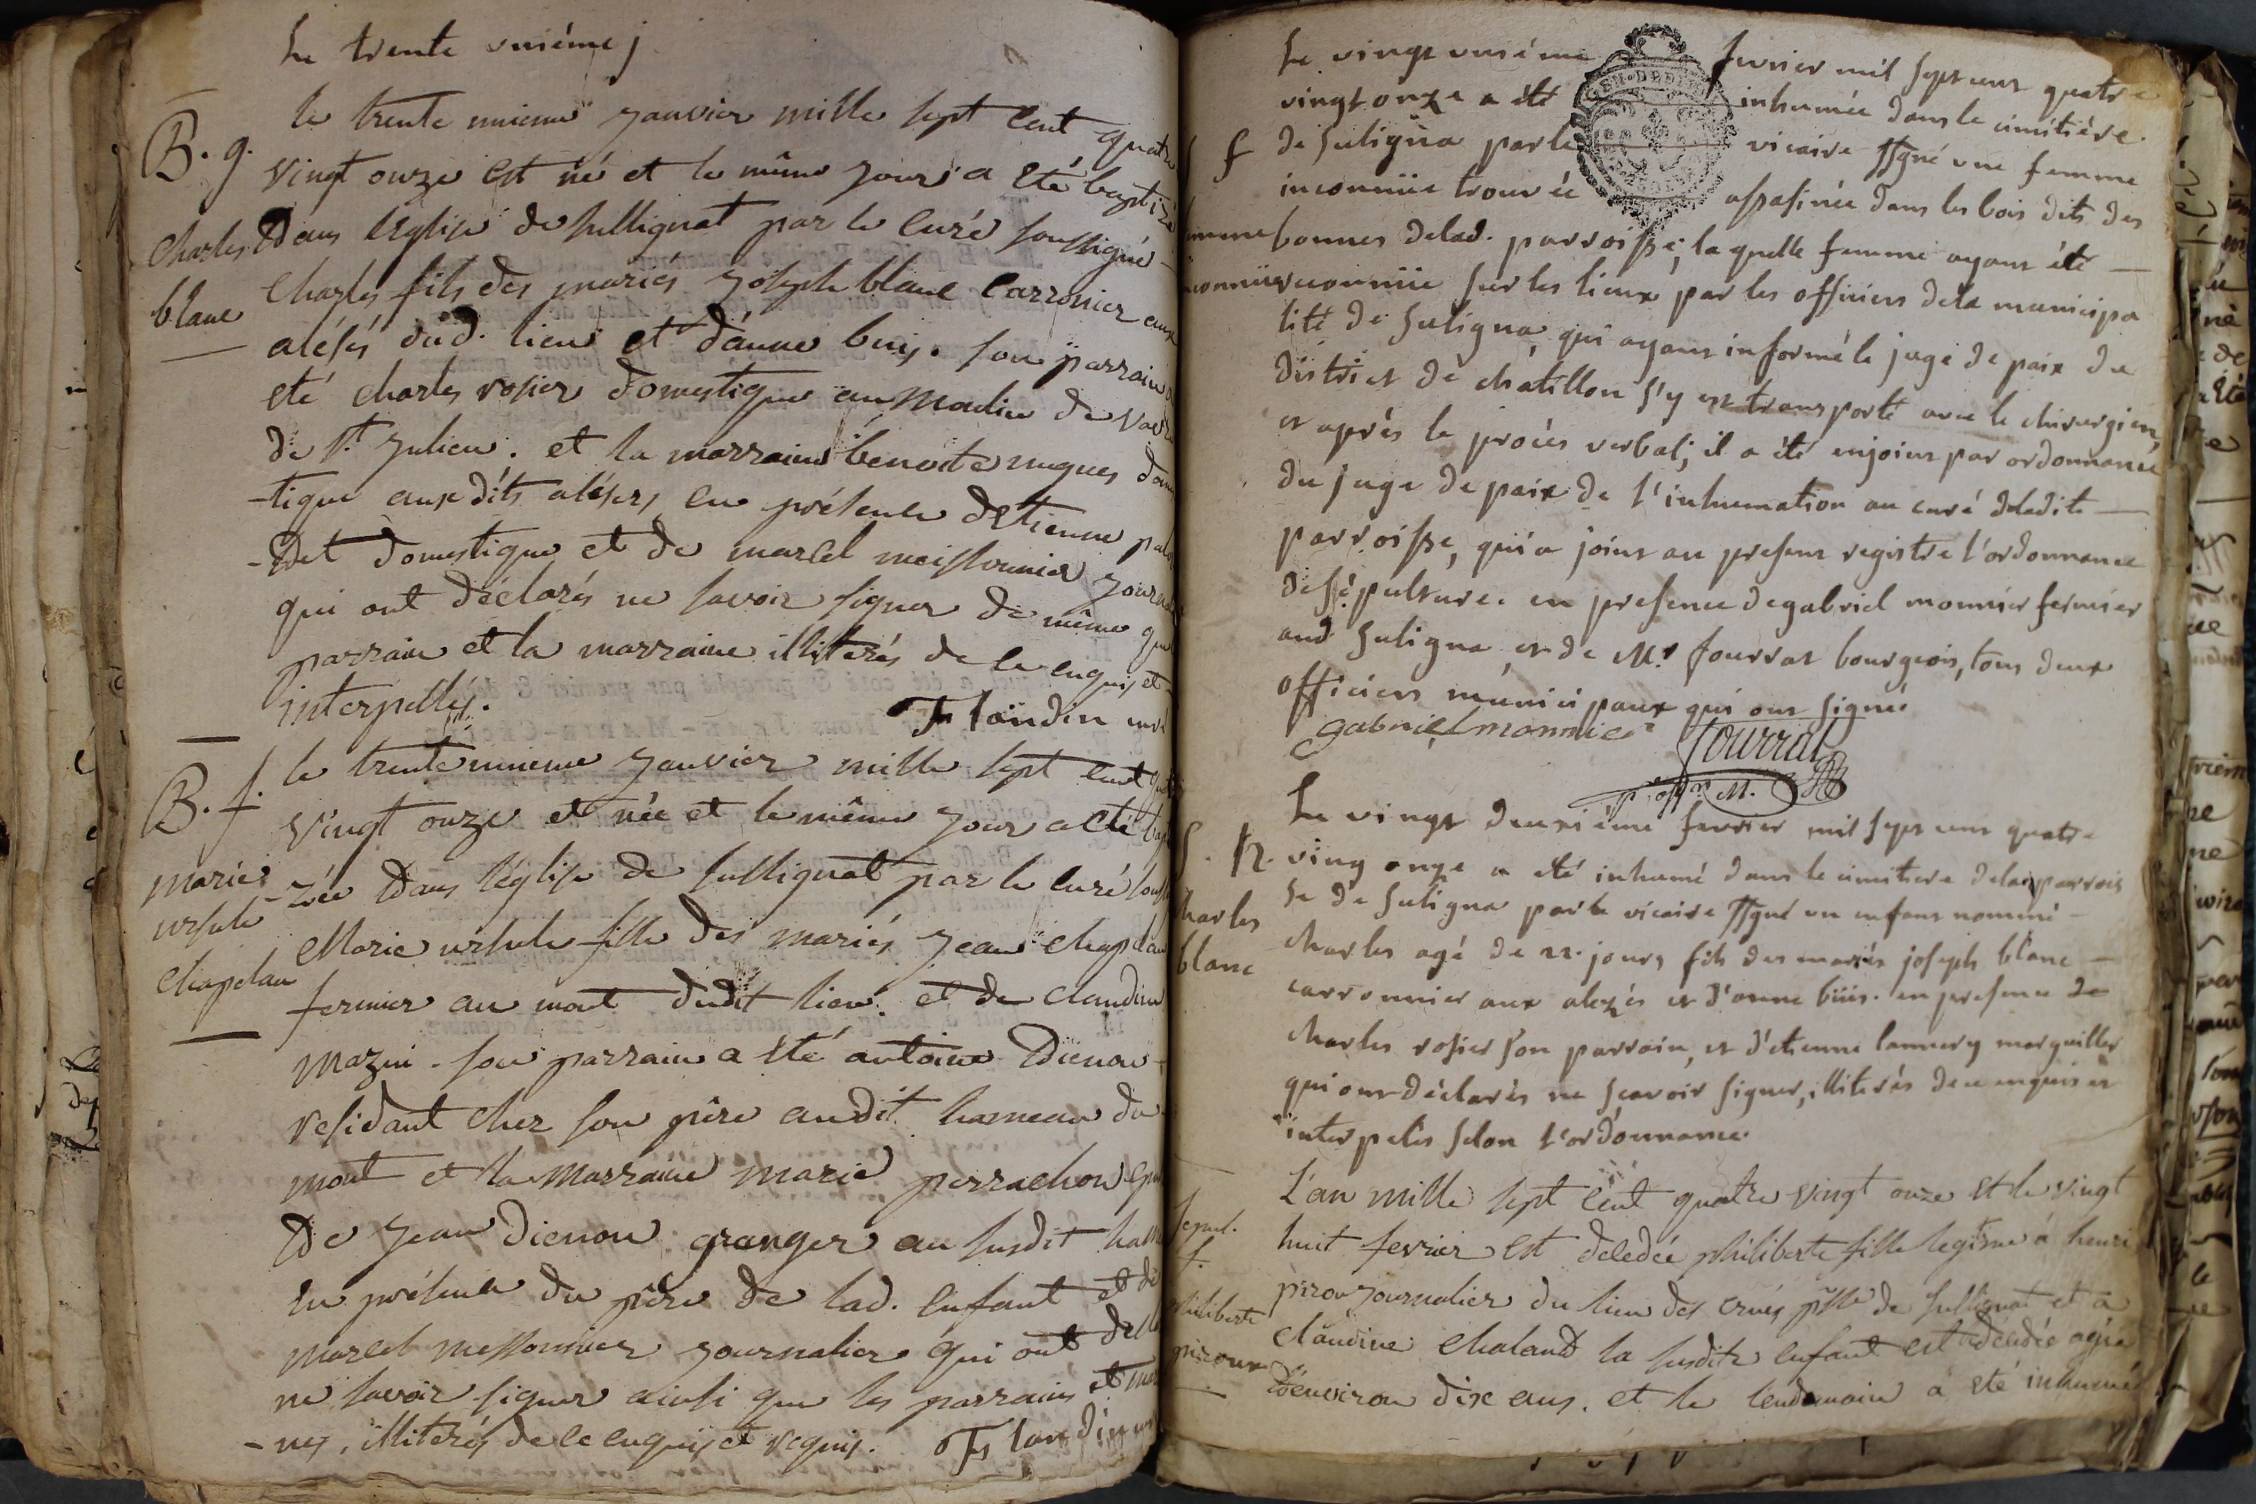 Le trente unième j
B. g.
Charles
blanc
le trente unieme janvier mille sept cent quatre
vingt onze est né et le même jour a eté baptizé
Dans léglise de sullignat par le curé soussigné
Charles fils des mariés joseph blanc carronier aux
alésés dud. lieu et d'anne buis. son parrain a
eté charles rosier domestique au moulin de
de st. julien. et la marraine benoite nugues dome
-tique aux dits alésés, en présence d'Etienne
-det domestique et de marcel meissonnier journ
qui ont déclarés ne savoir signer de même que
parrain et la marraine illiterés de ce enquis et
interpellés.
Flandin curé
B. f.
marie
ursule
Chapelan
le trente unieme janvier mille sept cent
vingt onze est née et le même jour a eté
-zée Dans l'église de sullignat par le curé
Marie ursule fille des mariés jean chapelan
fermier au mont dudit lieu. et de claudine
mazui. son parrain a été antoine Dienou
residant chez son père audit hameau du
mont et la marraine marie perrachon
De jean Dienou granger au susdit
en présence du père de lad. enfant et de
marcel messonnier journalier qui ont
ne savoir signer ainsi que les parrains et
-nes, illiterés de ce enquis et requis. Flandin
Le vingt unième fevrier mil sept cent quatre
vingt onze a été inhumée dans le cimitière
de suligna par le vicaire ssgné une femme
inconnüe trouvée assasinée dans les bois dits des
bonnes delad. parroisse; la quelle femme ayant été
reconnüe sur les lieux par les officiers dela municipa
lité de suligna, qui ayant informé le juge de paix du
district de chatillon s'y est transporté avec le chirurgien,
et après le procès verbal; il a été enjoint par ordonnance
du juge de paix de l'inhumation au curé deladite
parroisse, qui a joint au present registre l'ordonnance
de sépulture. en presence de gabriel monnier fermier
aud suligna et de Mr fourrat bourgeois, tous deux
officiers municipaux qui ont signé
f
gabriel monnier
fourrat
Le vingt deuxième fevrier mil sept cent quatre
ving onze a eté inhumé dans le cimitiere delad parrois
se de suligna par le vicaire ssgné un enfant nommé
charles agé de 22. jours fils des mariés joseph blanc
carronnier aux alezés et d'anne büis. en presence de
charles rosier son parrain, et d'etienne lannery marguiller
qui ont déclarés ne scavoir signer, illiterés de ce enquis et
interpelés selon l'ordonnance.
charles
blanc
L'an mille sept cent quatre vingt onze et le vingt
huit fevrier est décedée philiberte fille legitime à henri
pirou journalier du lieu des crues psse de sullignat et à
claudine chaland la susdite enfant est décedée agée
d'environ dix ans. et le lendemain a eté inhumé
sepul.
f.
philiberte
piroux